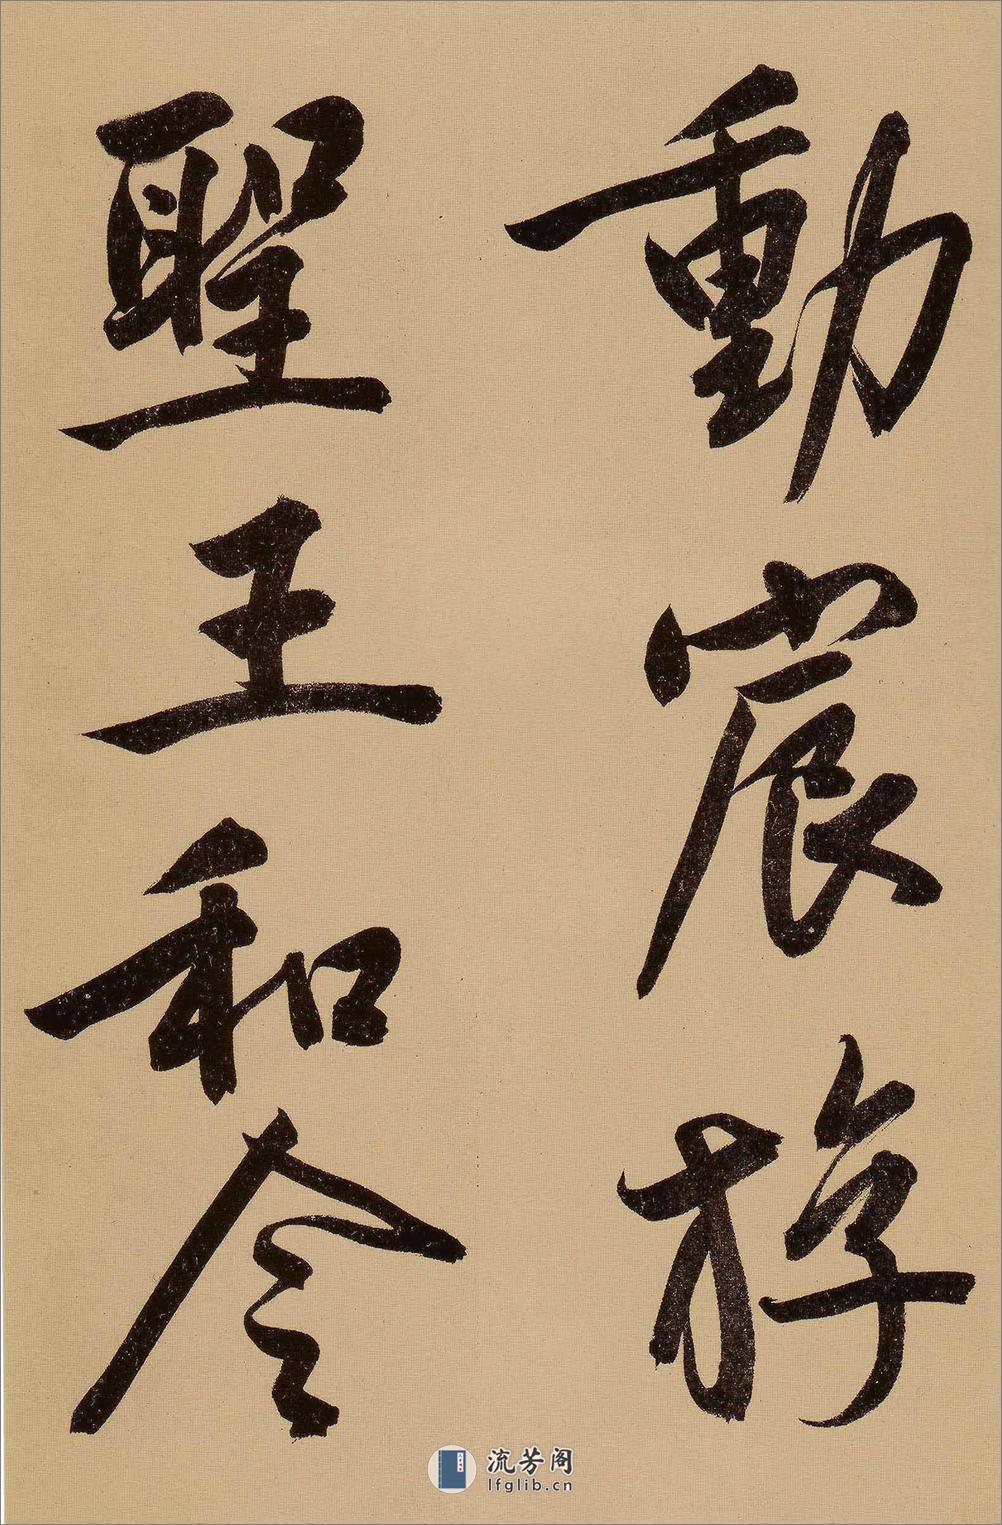 動宸游
聖王和令
流芳阁
lfglib.cn